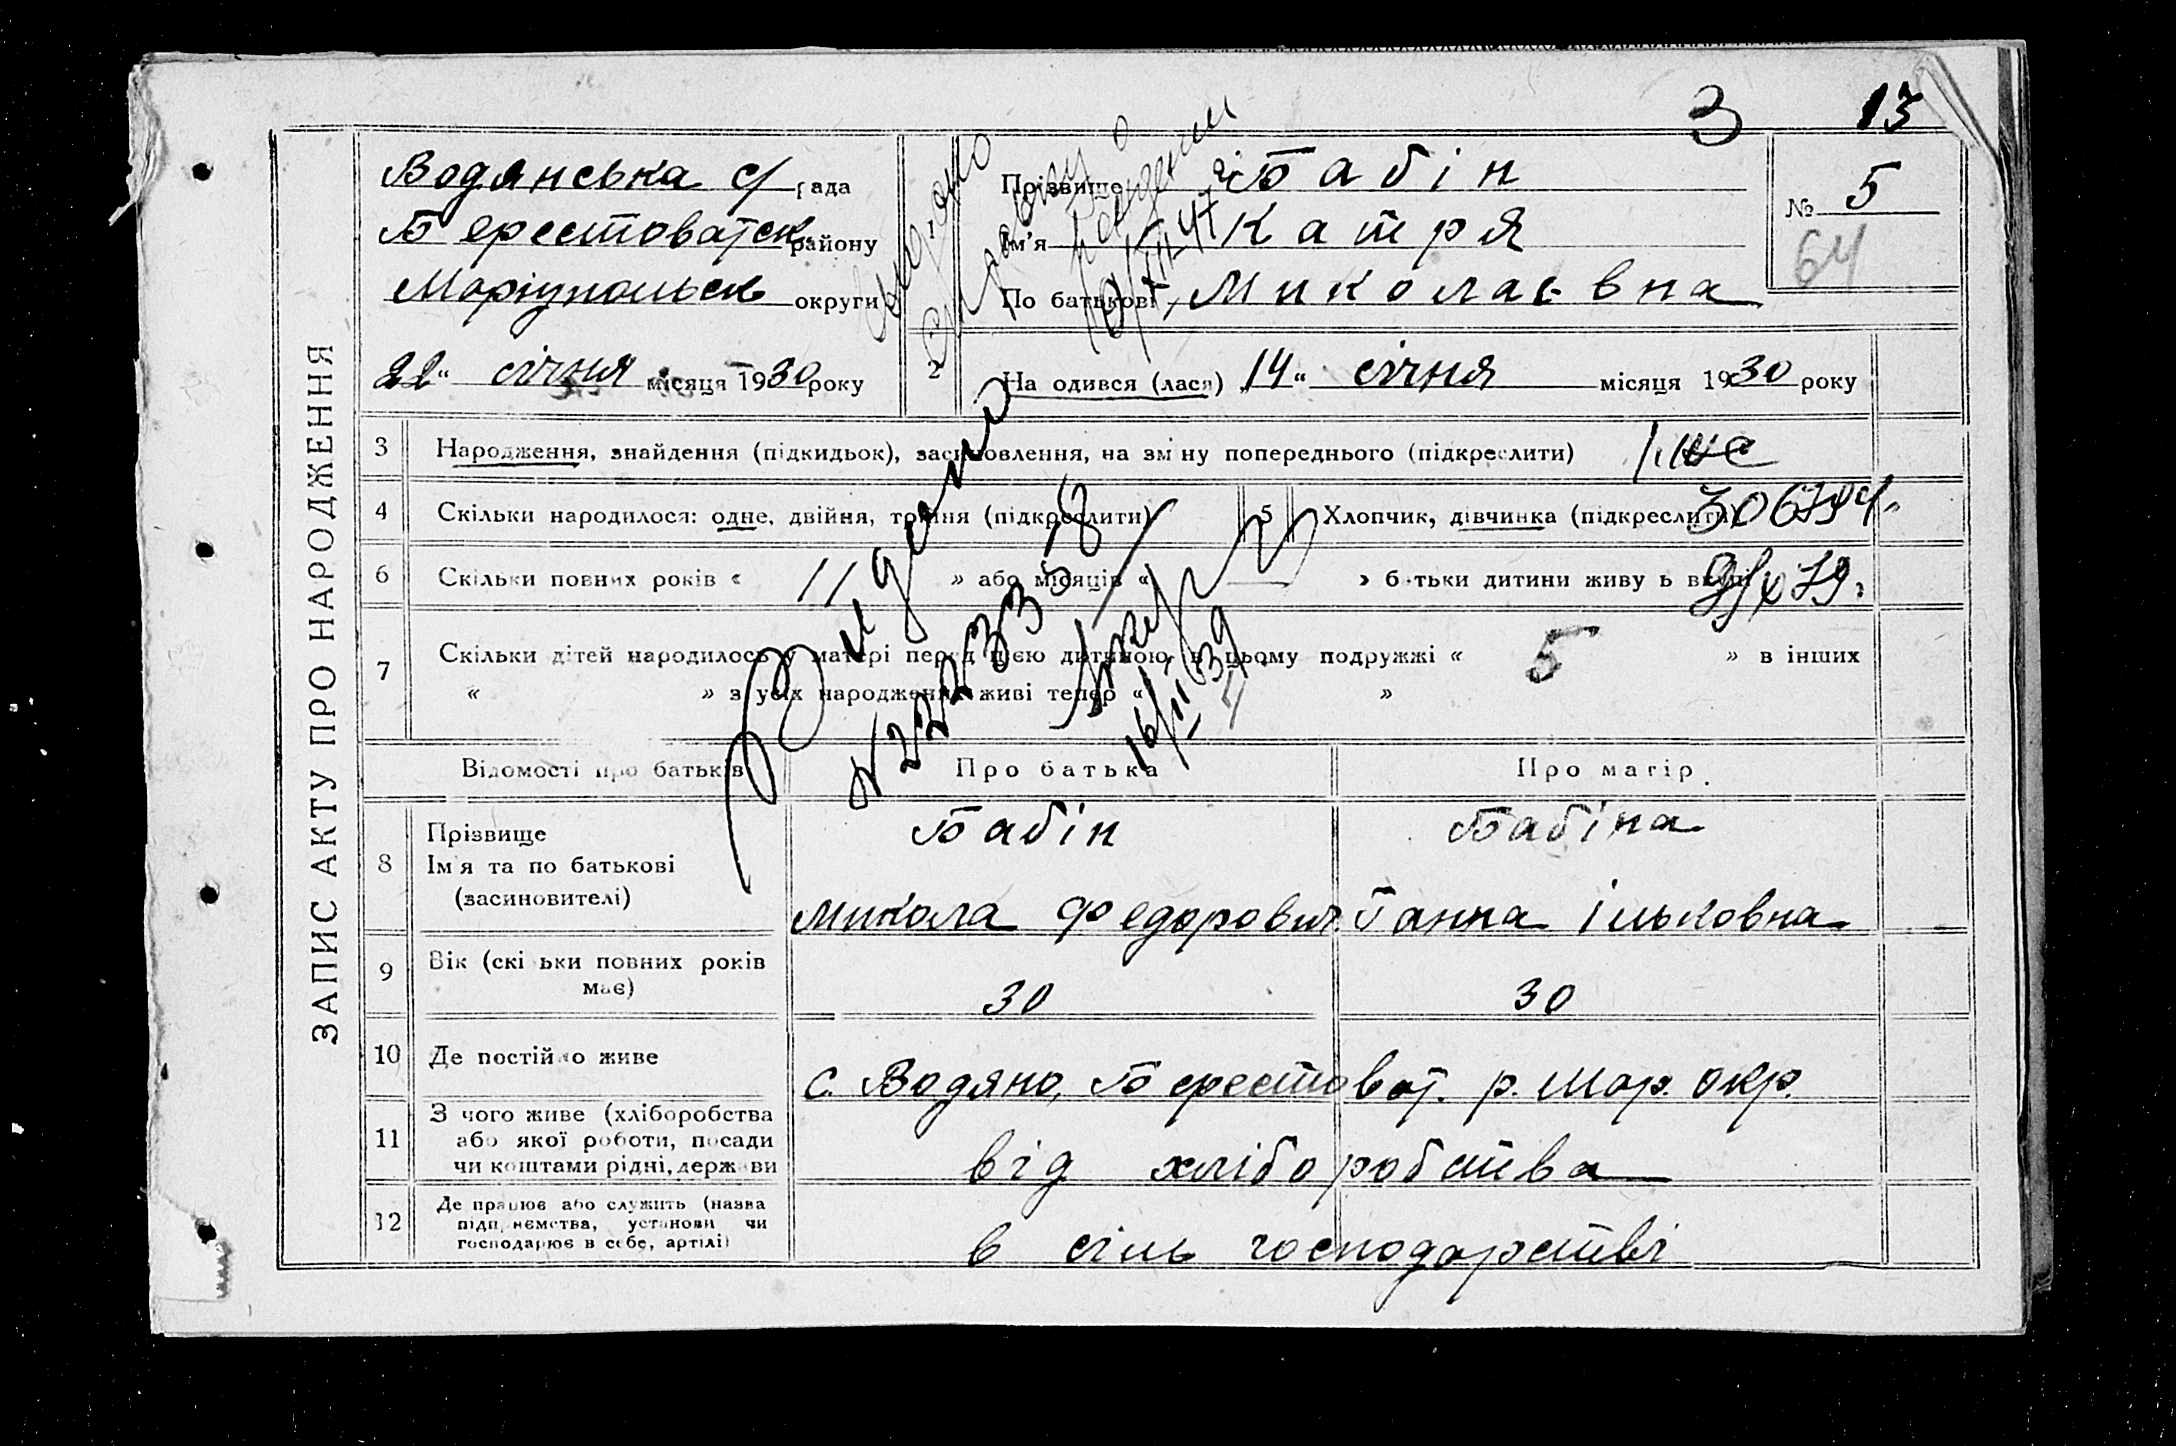 3 13
ЗАПИС АКТУ ПРО НАРОДЖЕННЯ
Водянська с/рада
Берестоватск. району
Маріупольск округи
22 " січня місяця 1930 року
1
Прізвище Бабін
Ім'я Катря
По батькові Миколаєвна
№ 5
64
2
На одився (лася) 14 " січня місяця 1930 року
3 Народження, знайдення (підкидьок), засиновлення, на зміну попереднього (підкреслити)
4 Скільки народилося: одне, двійня, тройня (підкреслити) 5 Хлопчик, дівчинка (підкреслити)
6 Скільки повних років « 11 » або місяців « — » батьки дитини живу ь вкупі
7 Скільки дітей народилось у матері перед цією дитиною, в цьому подружжі « 5 » в інших
« » з усіх народжених живі тепер « »
Видано
№ 222335
16/II 39
Відомості про батьків Про батька Про матір
8 Прізвище
Ім'я та по батькові
(засиновителі)
Бабін Бабіна
Микола Федорович Ганна Ільковна
9 Вік (скі ьки повних років
має)
30 30
10 Де постійно живе
с. Водяно, Берестоват. р. Мар. окр.
11 З чого живе (хліборобства
або якої роботи, посади
чи коштами рідні, держави
від хліборобства
12 Де працює або служить (назва
підп иємства, установи чи
господарює в себе, артілі)
в сіль господарстві